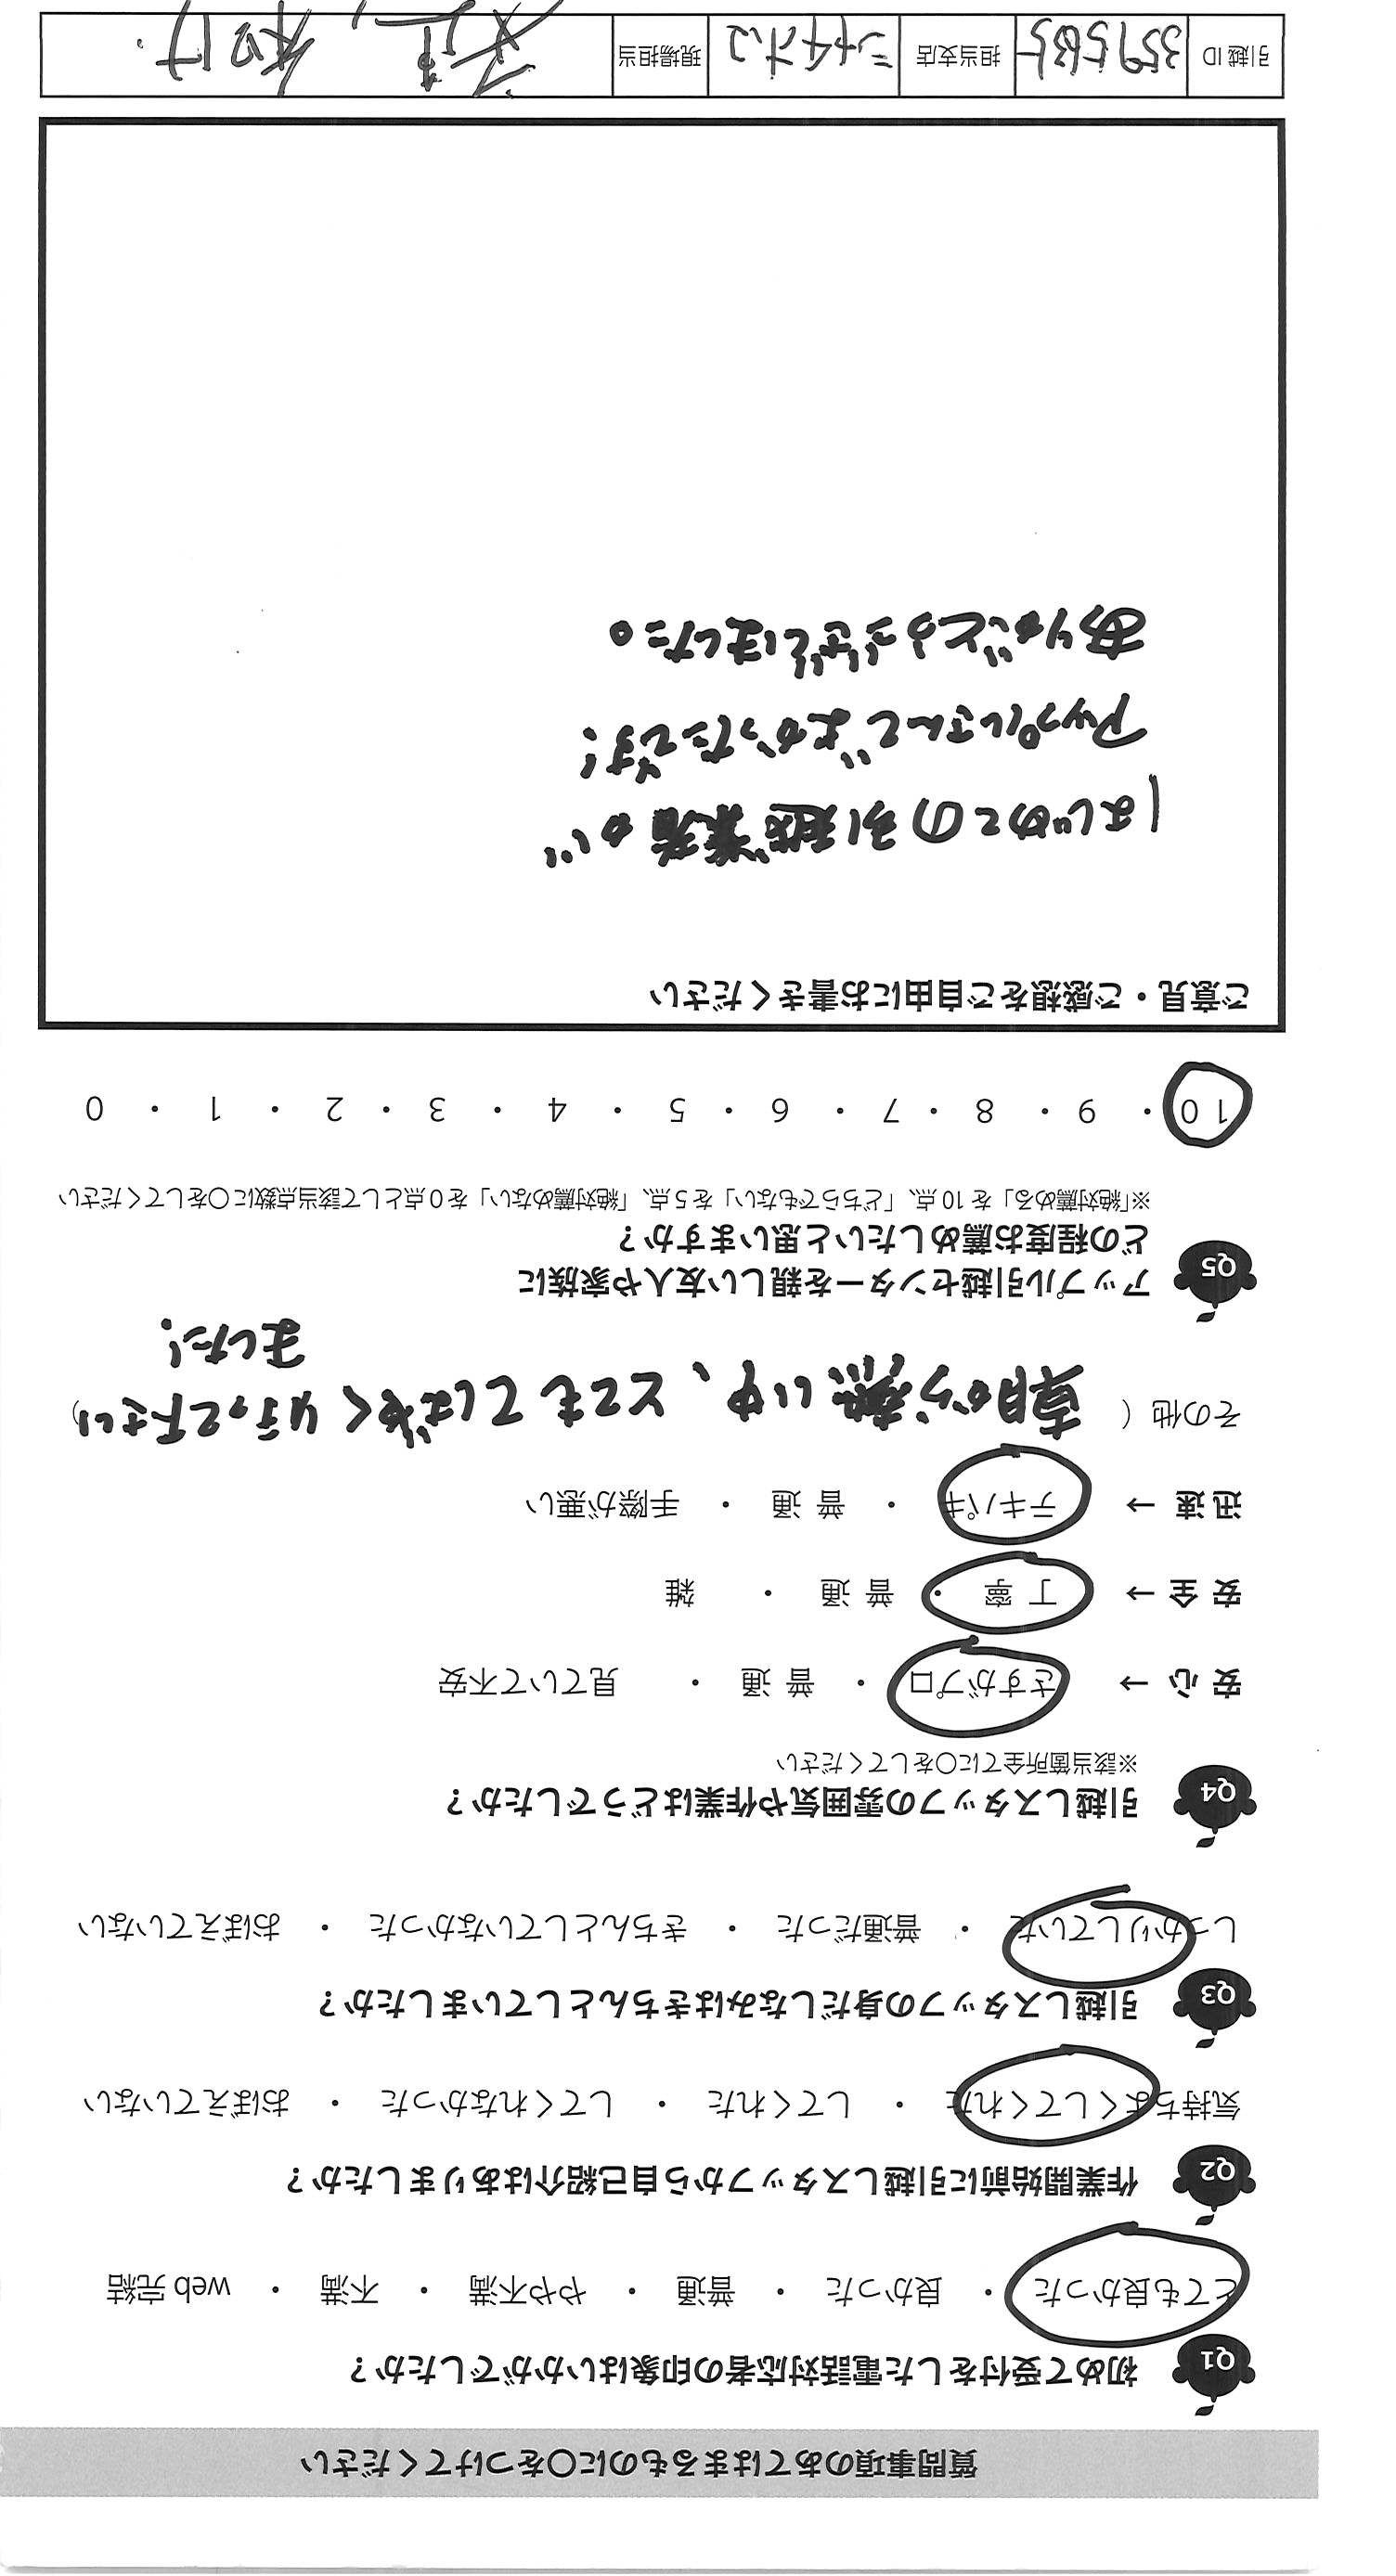 質問事項のあてはまるものに〇をつけてください
Q1 初めて受付をした電話対応者の印象はいかがでしたか？
とても良かった ・ 良かった ・ 普通 ・ やや不満 ・ 不満 ・ web 完結
Q2 作業開始前に引越しスタッフから自己紹介はありましたか？
気持ちよくしてくれた ・ してくれた ・ してくれなかった ・ おぼえていない
Q3 引越しスタッフの身だしなみはきちんとしていましたか？
しっかりしていた ・ 普通だった ・ きちんとしていなかった ・ おぼえていない
Q4 引越しスタッフの雰囲気や作業はどうでしたか？
※該当箇所全てに〇をしてください
安心 → さすがプロ ・ 普通 ・ 見ていて不安
安全 → 丁寧 ・ 普通 ・ 雑
迅速 → テキパキ ・ 普通 ・ 手際が悪い
その他 （ 朝から熱い中、とてもてばやく行って下さい ）
ました！
Q5 アップル引越センターを親しい友人や家族に
どの程度お薦めしたいと思いますか？
※「絶対薦める」を 10 点、「どちらでもない」を 5 点、「絶対薦めない」を 0 点として該当点数に〇をしてください
10 ・ 9 ・ 8 ・ 7 ・ 6 ・ 5 ・ 4 ・ 3 ・ 2 ・ 1 ・ 0
ご意見・ご感想をご自由にお書きください
はじめての引越業者が
アップルさんでよかったです！
ありがとうございました。
引越 ID 担当支店 現場担当